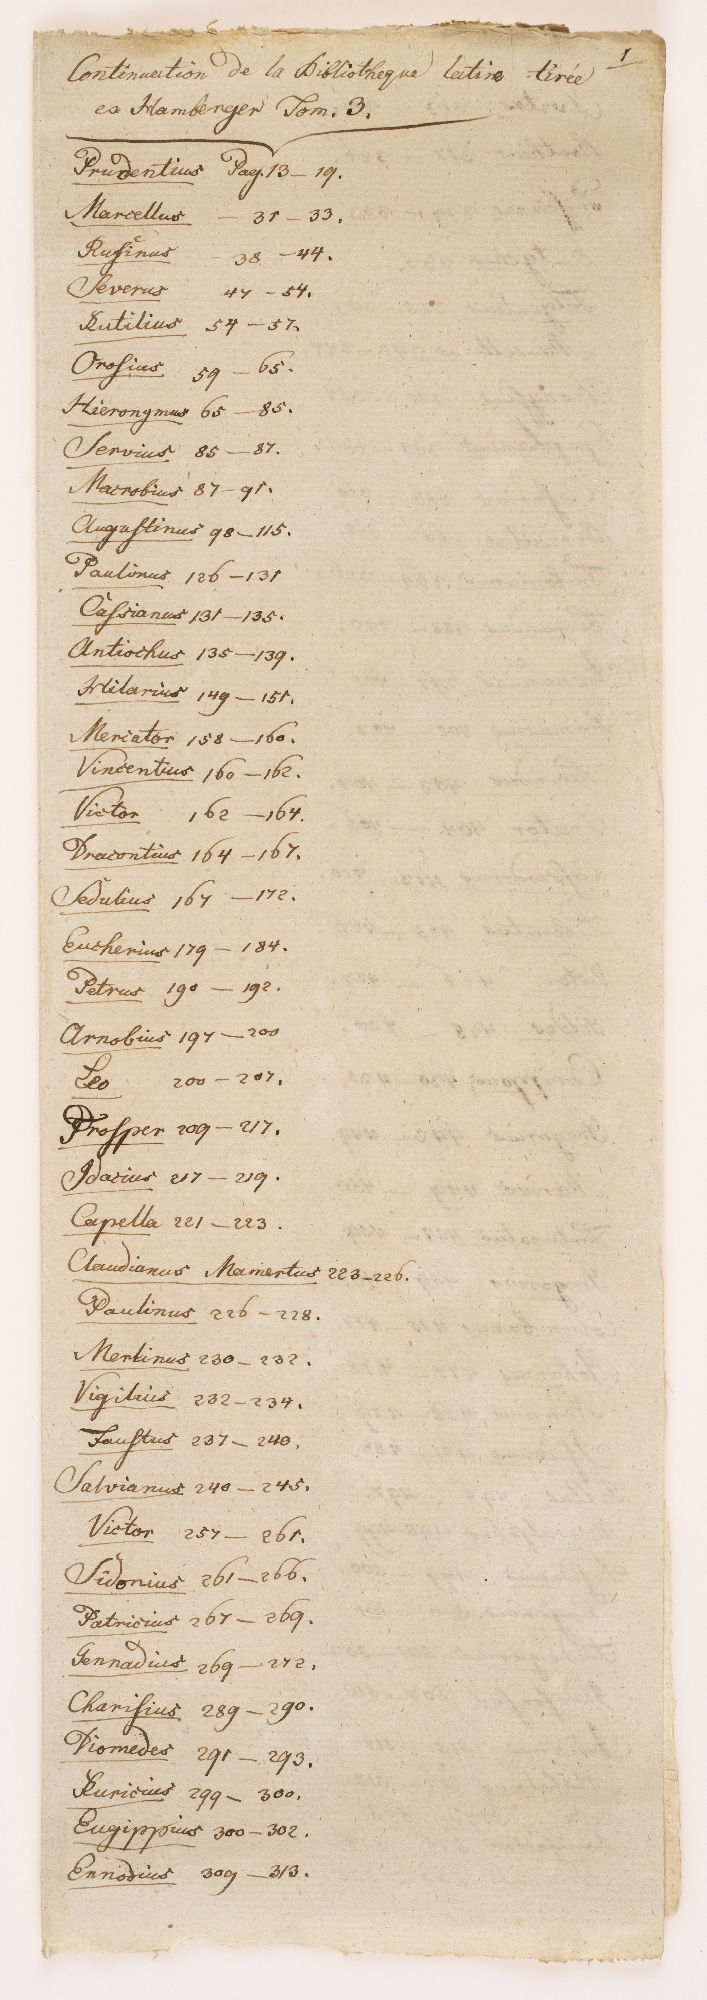 1
Continuation de la Bibliotheque latine tirée
ex Hamberger Tom. 3.
Prudentius Pag. 13 – 19.
Marcellus – 31 – 33.
Rufinus – 38 – 44.
Severus 47 – 54.
Rutilius 54 – 57.
Orosius 59 – 65.
Hieronymus 65 – 85.
Servius 85 – 87.
Macrobius 87 – 91.
Augustinus 98 – 115.
Paulinus 126 – 131
Cassianus 131 – 135.
Antiochus 135 – 139.
Hilarius 149 – 151.
Mercator 158 – 160.
Vincentius 160 – 162.
Victor 162 – 164.
Dracontius 164 – 167.
Sedulius 167 – 172.
Eucherius 179 – 184.
Petrus 190 – 192.
Arnobius 197 – 200
Leo 200 – 207.
Prosper 209 – 217.
Idacius 217 – 219.
Capella 221 – 223.
Claudianus Mamertus 223 – 226.
Paulinus 226 – 228.
Merlinus 230 – 232.
Vigilius 232 – 234.
Faustus 237 – 240.
Salvianus 240 – 245.
Victor 257 – 261.
Sidonius 261 – 266.
Patricius 267 – 269.
Gennadius 269 – 272.
Charisius 289 – 290.
Diomedes 291 – 293.
Ruricius 299 – 300.
Eugippius 300 – 302.
Ennodius 309 – 313.